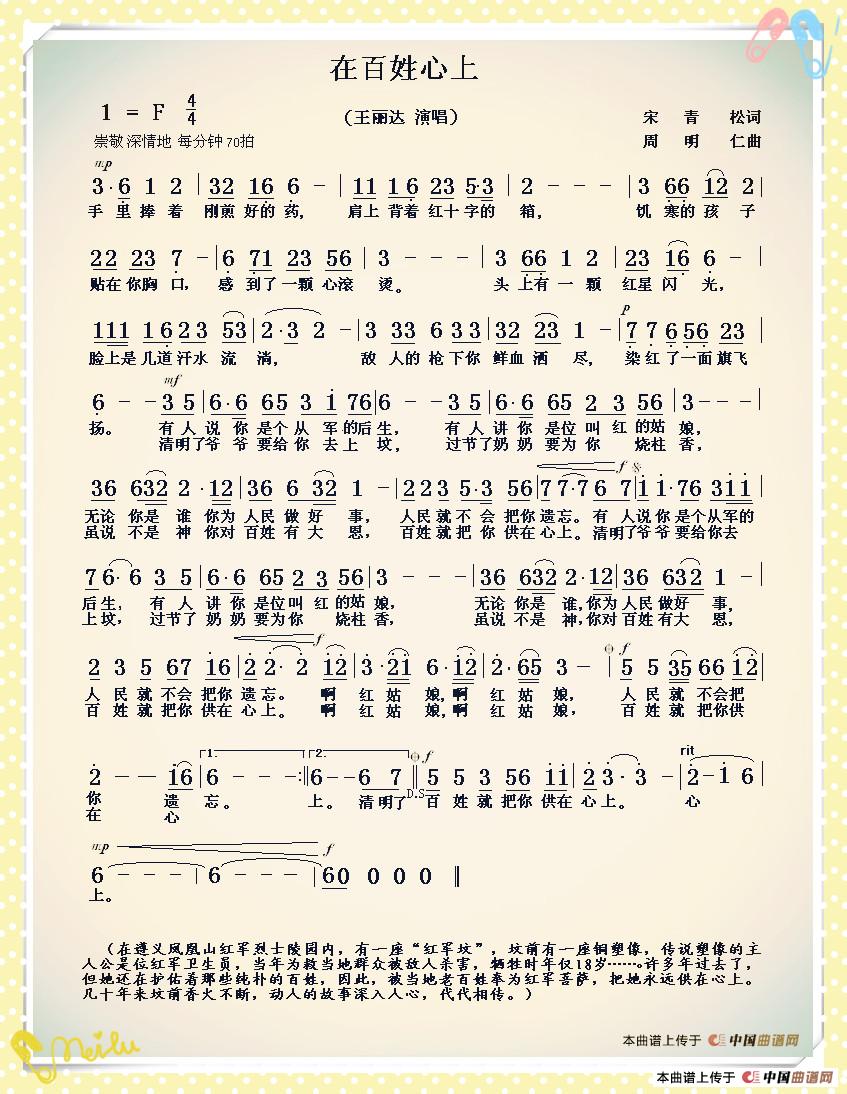 在百姓心上
1 = F 4/4 （王丽达 演唱） 宋 青 松词
崇敬 深情地 每分钟 70拍 周 明 仁曲
mp
3·6 1 2 | 32 16 6 - | 11 16 23 5·3 | 2 - - - | 3 66 12 2 |
手 里 捧 着 刚煎 好的 药， 肩上 背着 红十 字的 箱， 饥 寒的 孩 子
22 23 7 - | 6 71 23 56 | 3 - - - | 3 66 1 2 | 23 16 6 - |
贴在 你胸 口， 感 到了 一颗 心滚 烫。 头 上有 一 颗 红星 闪 光，
p
111 16 23 53 | 2·3 2 - | 3 33 6 33 | 32 23 1 - | 7 7 6 56 23 |
脸上是 几道 汗水 流 淌， 敌 人的 枪 下你 鲜血 洒 尽， 染 红 了 一面 旗飞
mf
6 - - 35 | 6·6 65 3 1 76 | 6 - - 35 | 6·6 65 2 3 56 | 3 - - - |
扬。 有人 说 你 是个 从 军 的后 生， 有人 讲 你 是位 叫 红 的姑 娘，
清明了 爷 爷 要给 你 去 上 坟， 过节了 奶 奶 要为 你 烧柱 香，
f
36 632 2·12 | 36 6 32 1 - | 223 5·3 56 | 77·7 6 7 | 1 1·76 311 |
无论 你是 谁 你为 人民 做 好 事， 人民就 不 会 把你 遗忘。 有 人 说你 是个从军的
虽说 不是 神 你对 百姓 有 大 恩， 百姓就 把 你 供在 心上。 清明了 爷爷 要给你去
76·6 3 5 | 6·6 65 23 56 | 3 - - - | 36 632 2·12 | 36 632 1 - |
后生， 有 人 讲 你 是位 叫 红 的姑 娘， 无论 你是 谁，你为 人民 做好 事，
上坟， 过节 了 奶 奶 要为 你 烧柱 香， 虽说 不是 神，你对 百姓 有大 恩，
f f
2 3 5 67 16 | 2 2·2 12 | 3·21 6·12 | 2·65 3 - | 5 5 35 66 12 |
人 民 就 不会 把你 遗忘。 啊 红 姑 娘，啊 红 姑 娘， 人 民 就 不会 把
百 姓 就 把你 供在 心上。 啊 红 姑 娘，啊 红 姑 娘， 百 姓 就 把你 供
1. 2. f rit
2 - - 16 | 6 - - - :‖ 6 - - 6 7 ‖ 5 5 3 56 11 | 2 3·3 - | 2 - 1 6 |
D.S
你 遗 忘。 上。 清明了 百 姓 就 把你 供在 心上。 心
在 心
mp f
6 - - - | 6 - - - | 60 0 0 0 ‖
上。
（在遵义凤凰山红军烈士陵园内，有一座“红军坟”，坟前有一座铜塑像，传说塑像的主
人公是位红军卫生员，当年为救当地群众被敌人杀害，牺牲时年仅18岁……。许多年过去了，
但她还在护佑着那些纯朴的百姓，因此，被当地老百姓奉为红军菩萨，把她永远供在心上。
几十年来坟前香火不断，动人的故事深入人心，代代相传。）
Meilu
本曲谱上传于 中国曲谱网
本曲谱上传于 中国曲谱网